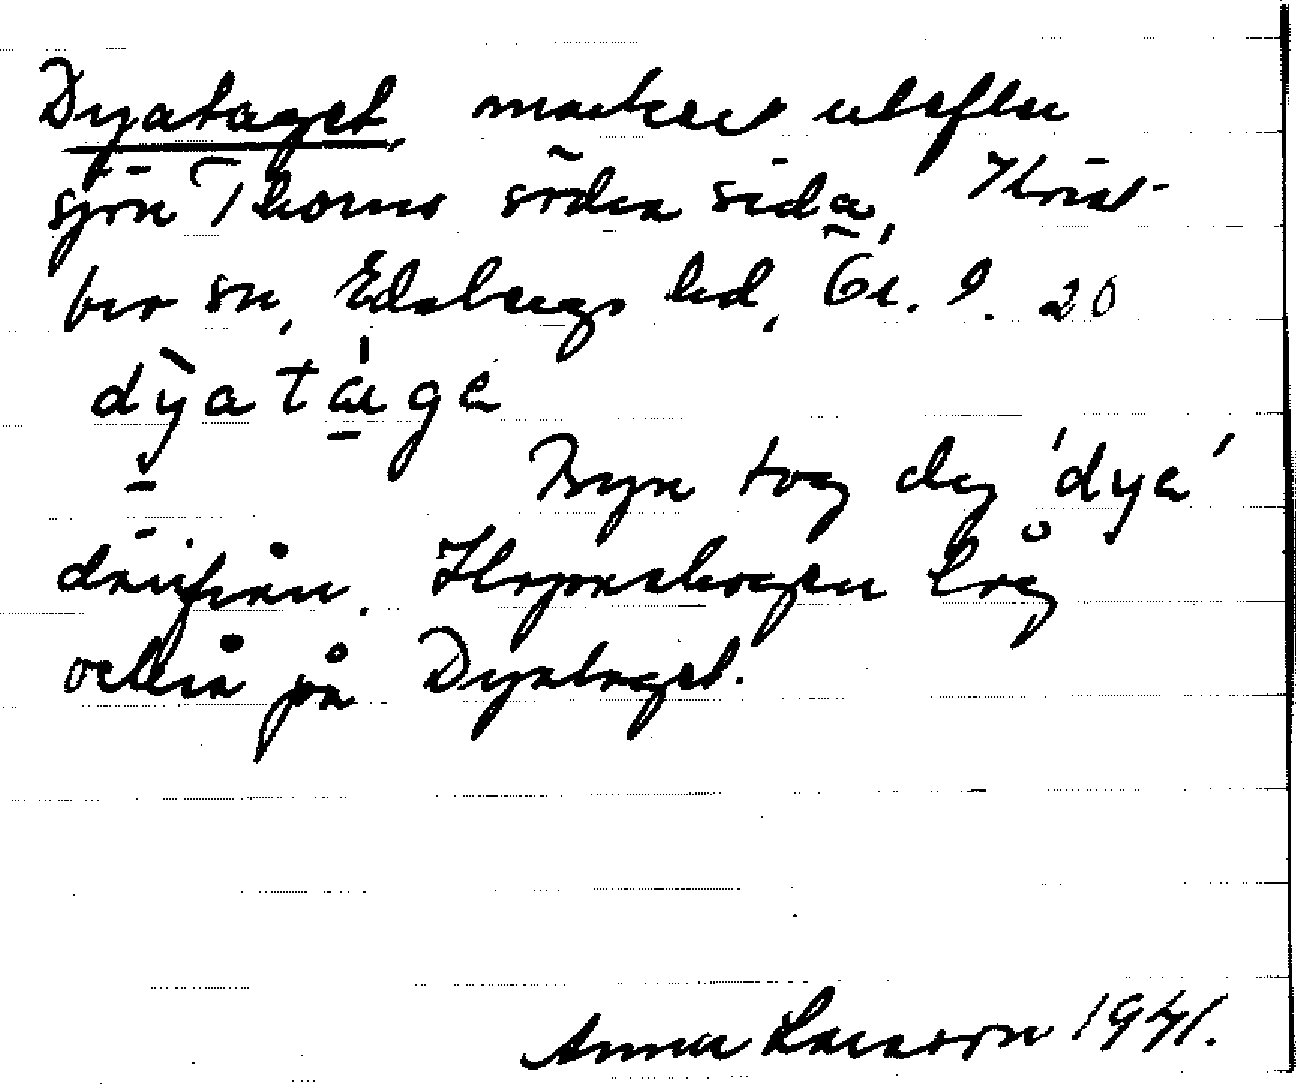 Dyataget, marken utefter
sjön Thorns södra sida, Kvist-
bro sn, Edsbergs hd, Ör. l. 20
dyatäge
Byn tog dej 'dya'
därifrån. Höjenskogen låg
också på Dyataget.
Anna Larsson 1941.